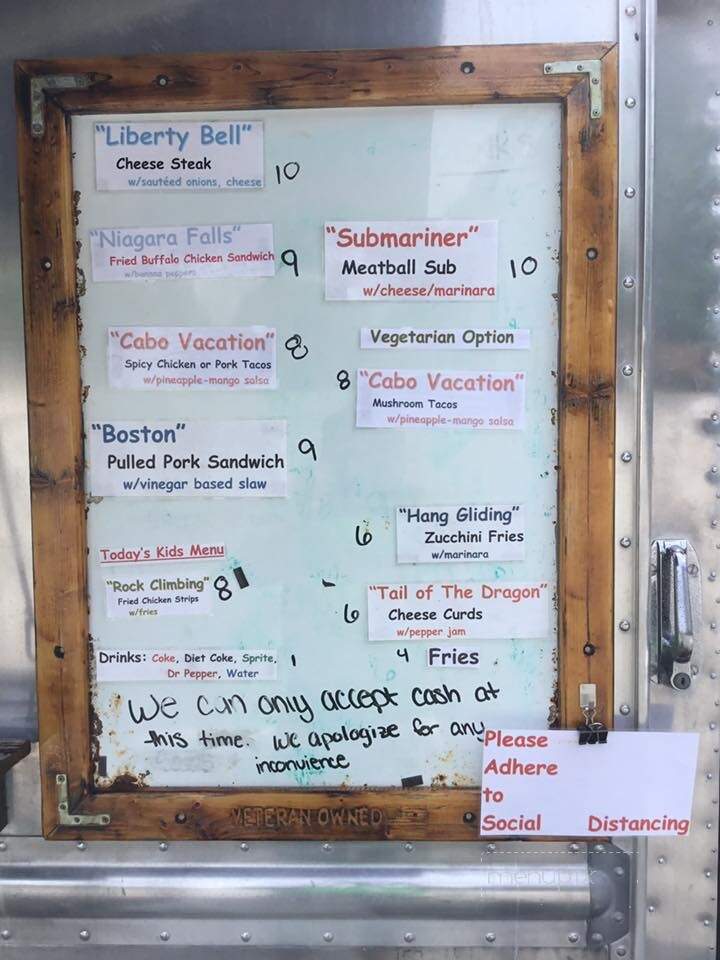 "Liberty Bell"
Cheese Steak
w/sautéed onions, cheese
10
"Niagara Falls"
Fried Buffalo Chicken Sandwich
w/banana peppers
9
"Submariner"
Meatball Sub
w/cheese/marinara
10
"Cabo Vacation"
Spicy Chicken or Pork Tacos
w/pineapple-mango salsa
8
Vegetarian Option
8
"Cabo Vacation"
Mushroom Tacos
w/pineapple-mango salsa
"Boston"
Pulled Pork Sandwich
w/vinegar based slaw
9
"Hang Gliding"
Zucchini Fries
w/marinara
6
Today's Kids Menu
"Rock Climbing"
Fried Chicken Strips
w/fries
8
"Tail of The Dragon"
Cheese Curds
w/pepper jam
6
Drinks: Coke, Diet Coke, Sprite,
Dr Pepper, Water
1
4 Fries
We can only accept cash at
this time. We apologize for any
inconvience
VETERAN OWNED
Please
Adhere
to
Social Distancing